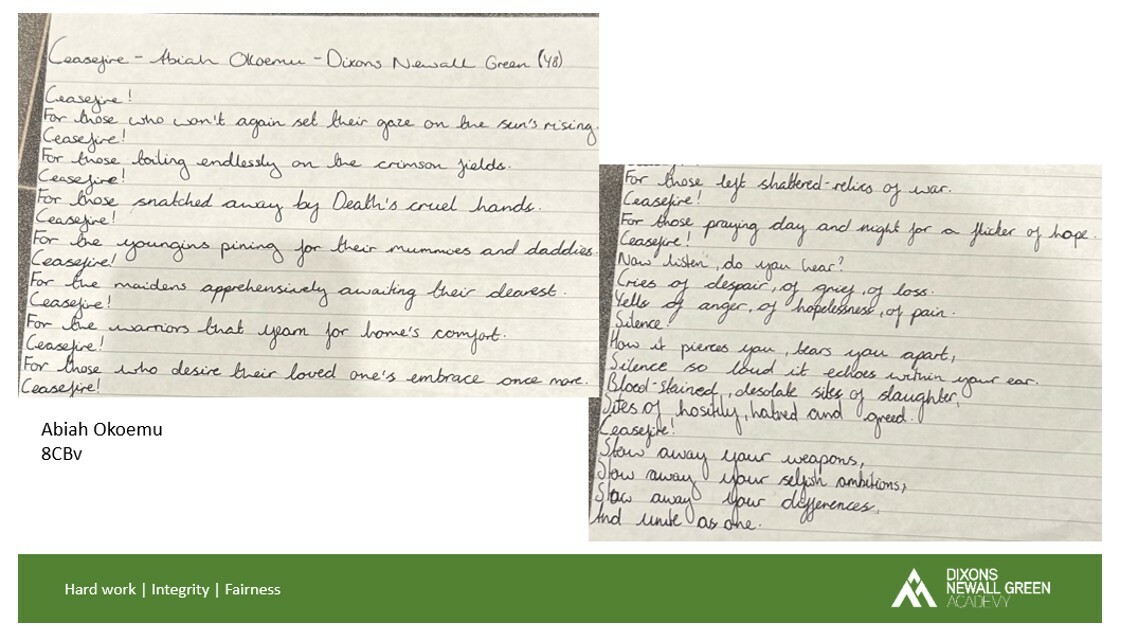 Ceasefire - Abiah Okoemu - Dixons Newall Green (Y8)
Ceasefire!
For those who won't again set their gaze on the sun's rising.
Ceasefire!
For those toiling endlessly on the crimson fields.
Ceasefire!
For those snatched away by Death's cruel hands.
Ceasefire!
For the youngins pining for their mummies and daddies.
Ceasefire!
For the maidens apprehensively awaiting their dearest.
Ceasefire!
For the warriors that yearn for home's comfort.
Ceasefire!
For those who desire their loved one's embrace once more.
Ceasefire!
For those left shattered-relics of war.
Ceasefire!
For those praying day and night for a flicker of hope.
Ceasefire!
Now listen, do you hear?
Cries of despair, of grief, of loss.
Yells of anger, of hopelessness, of pain.
Silence.
How it pierces you, tears you apart,
Silence so loud it echoes within your ear.
Blood-stained, desolate sites of slaughter,
Sites of hositly, hatred and greed.
Ceasefire!
Stow away your weapons,
Stow away your selfish ambitions,
Stow away your differences,
And unite as one.
Abiah Okoemu
8CBv
Hard work | Integrity | Fairness
DIXONS
NEWALL GREEN
ACADEMY